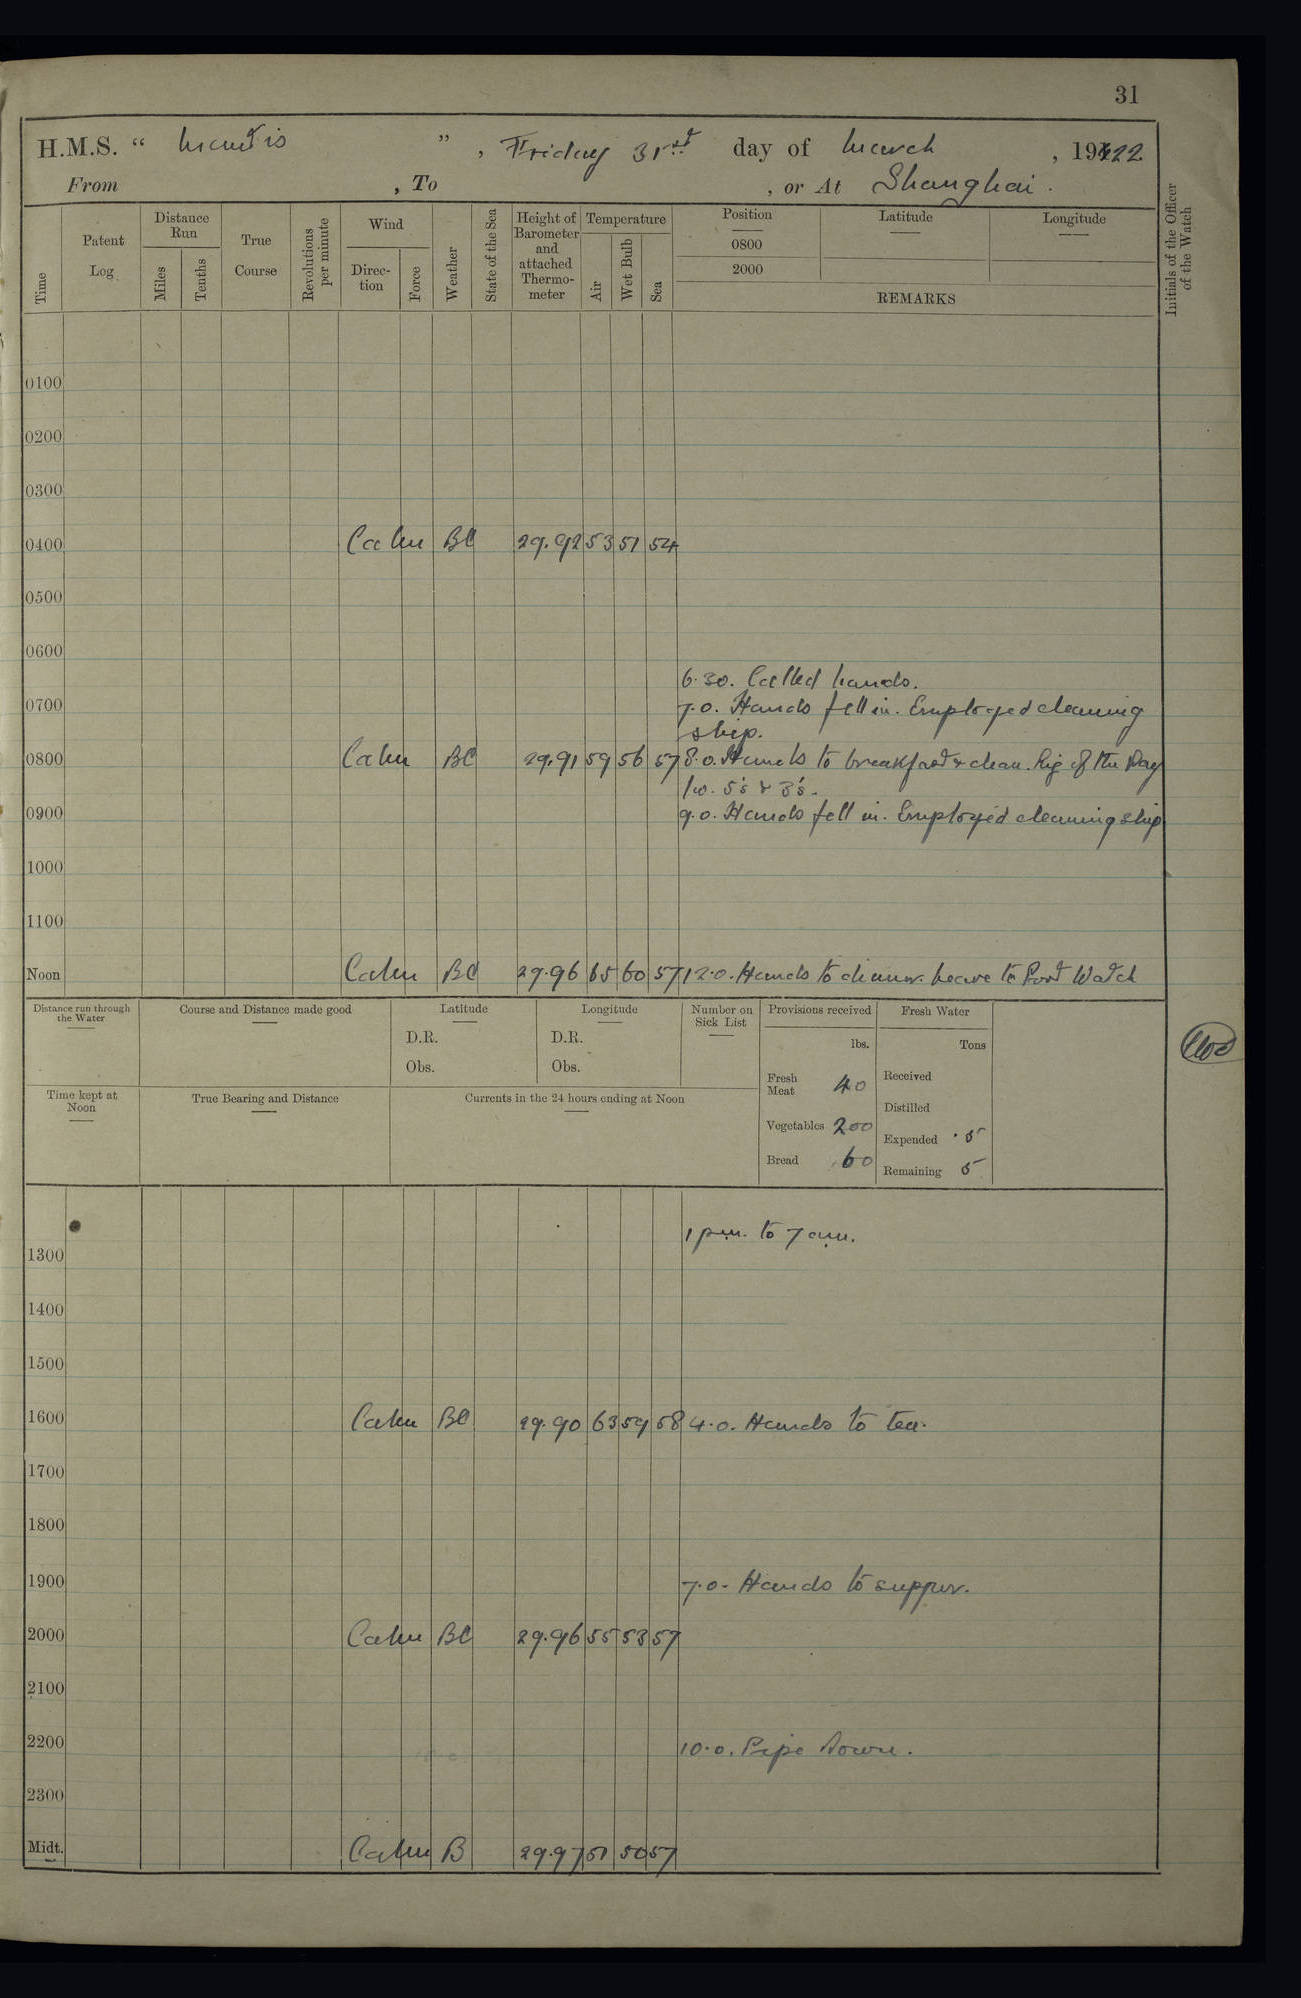 31
H.M.S. “ Mantis ” , Friday 31st day of March , 1922
From , To , or At Shanghai .
Time
Patent Log
Distance Run
Miles
Tenths
True Course
Revolutions per minute
Wind
Direc-tion
Force
Weather
State of the Sea
Height of Barometer and attached Thermo-meter
Temperature
Air
Wet Bulb
Sea
Position
0800
2000
Latitude
Longitude
REMARKS
Initials of the Officer of the Watch
0100
0200
0300
0400 Calm BC 29.92 53 51 54
0500
0600
6.30. Called hands.
0700 7.0. Hands fell in. Employed cleaning
ship.
0800 Calm BC 29.91 59 56 57 8.0. Hands to breakfast & clean. Rig of the Day
5's & 3's.
0900 9.0. Hands fell in. Employed cleaning ship
1000
1100
Noon Calm BC 29.96 65 60 57 12.0. Hands to dinner. Leave to Port Watch
Distance run through the Water
Course and Distance made good
Latitude
D.R.
Obs.
Longitude
D.R.
Obs.
Number on Sick List
Provisions received
lbs.
Fresh Meat 40
Vegetables 200
Bread 60
Fresh Water
Tons
Received
Distilled
Expended .5
Remaining 5
Time kept at Noon
True Bearing and Distance
Currents in the 24 hours ending at Noon
1 p.m. to 7 a.m.
1300
1400
1500
1600 Calm BC 29.90 63 59 58 4.0. Hands to tea.
1700
1800
1900 7.0. Hands to supper.
2000 Calm BC 29.96 55 53 57
2100
2200 10.0. Pipe Down.
2300
Midt. Calm B 29.97 51 50 57